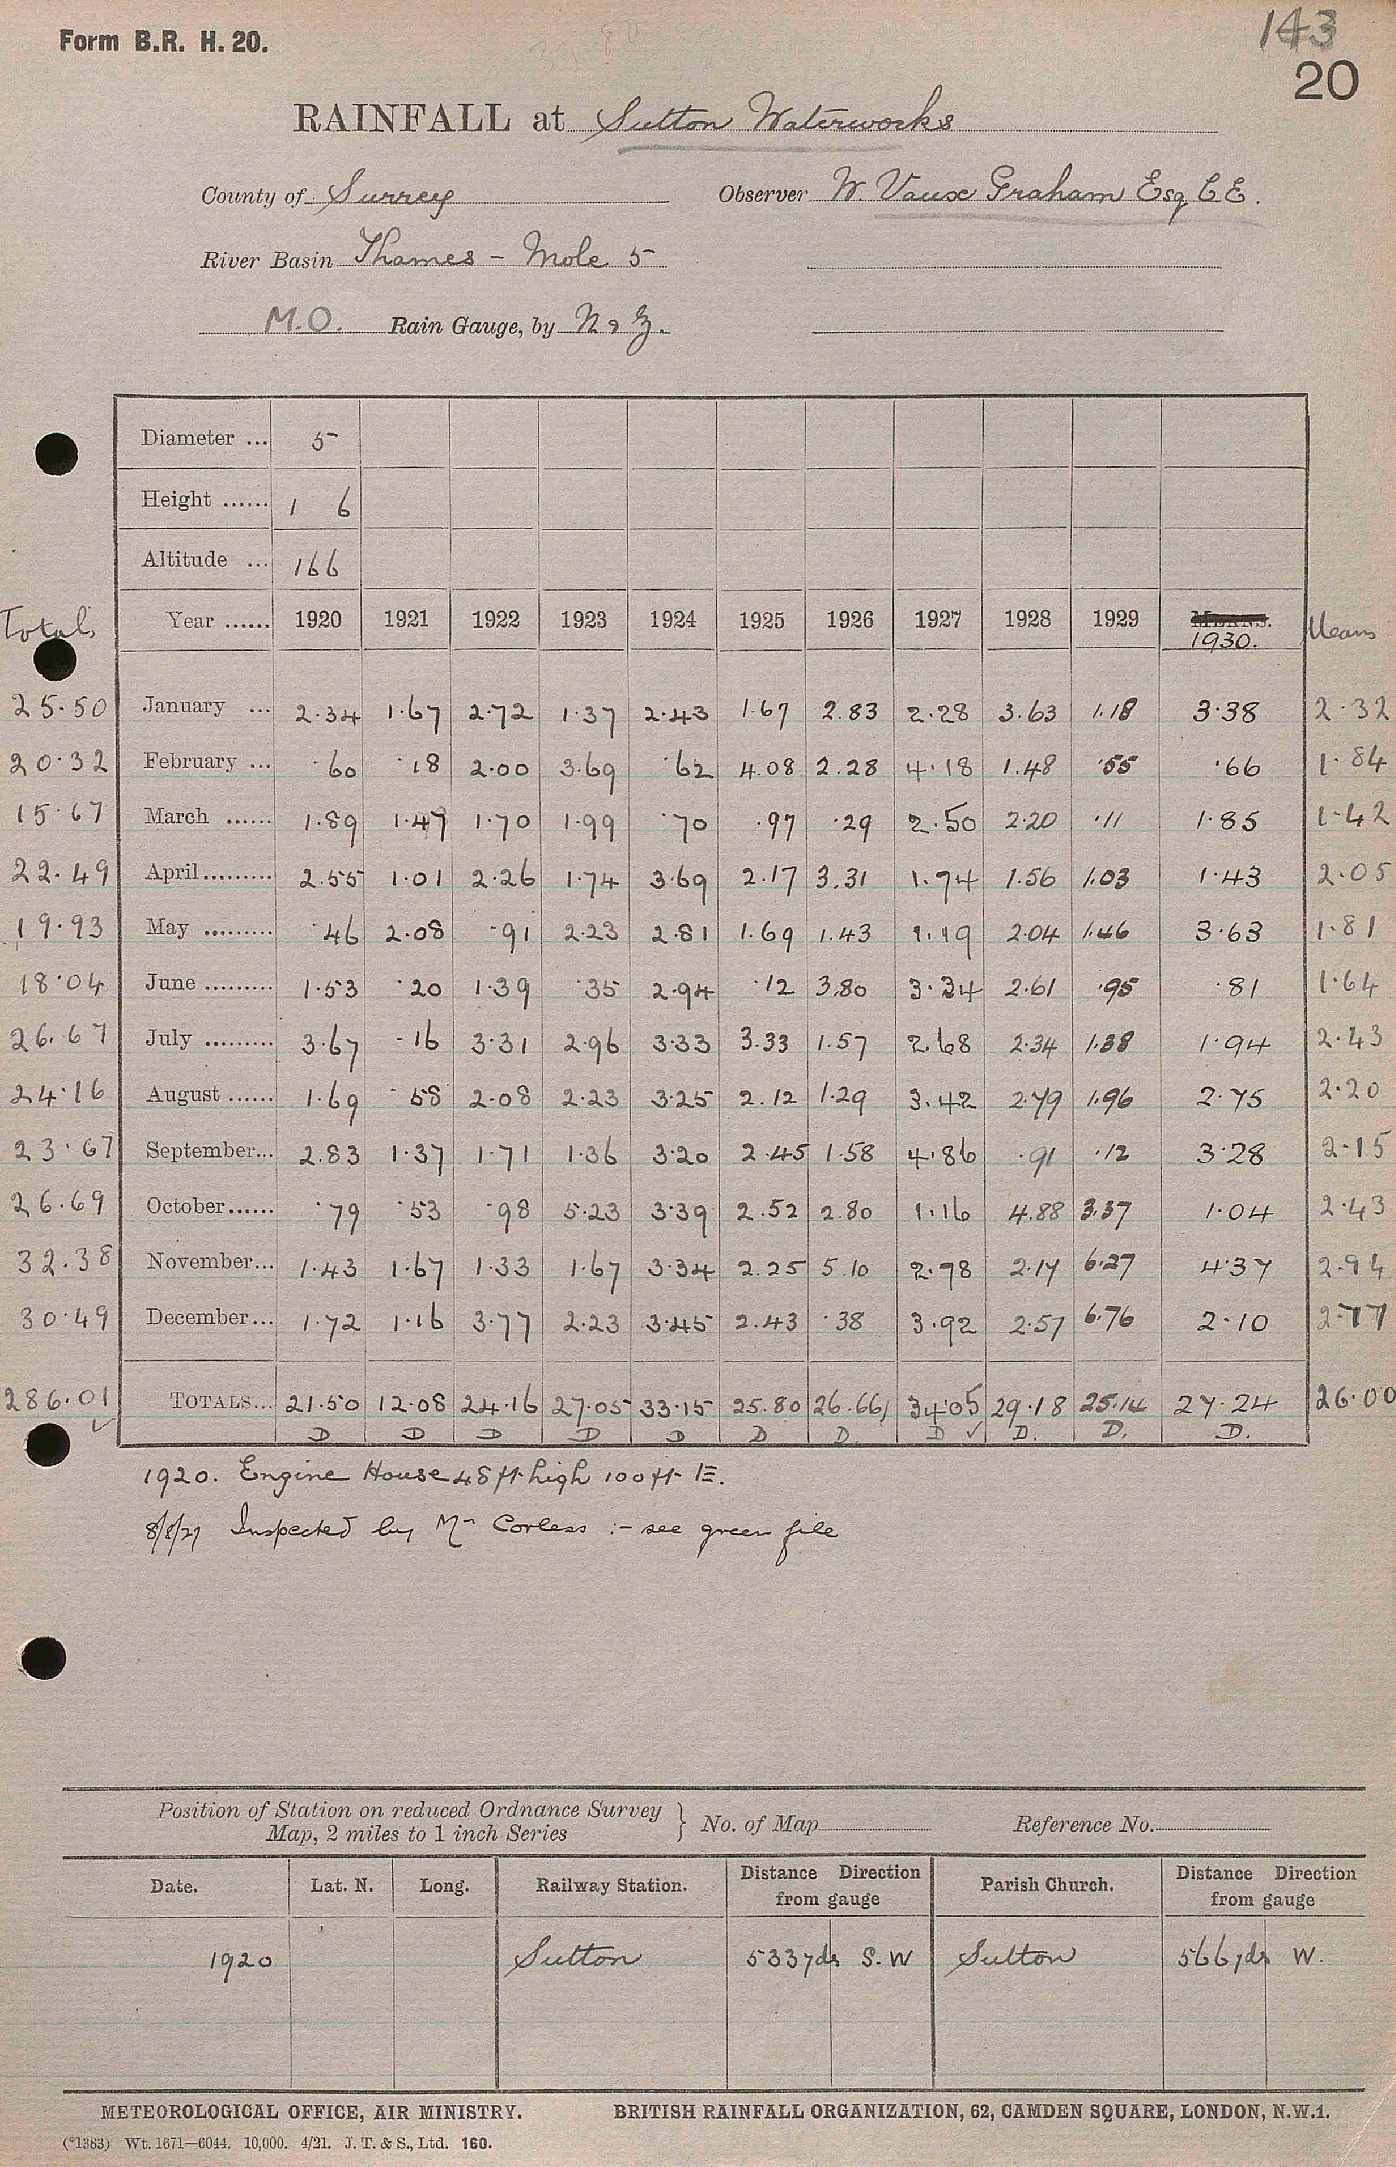 Form B.R. H. 20.
143
20
RAINFALL at Sutton Waterworks
County of Surrey Observer W. Vaux Graham Esq C E.
River Basin Thames - Mole 5
M.O. Rain Gauge, by N & Z.
Diameter ... 5
Height ...... 1 6
Altitude ... 166
Totals Year ...... 1920 1921 1922 1923 1924 1925 1926 1927 1928 1929 1930. Means
25.50 January ... 2.34 1.67 2.72 1.37 2.43 1.67 2.83 2.28 3.63 1.18 3.38 2.32
20.32 February ... .60 .18 2.00 3.69 .62 4.08 2.28 4.18 1.48 .55 .66 1.84
15.67 March ...... 1.89 1.47 1.70 1.99 .70 .97 .29 2.50 2.20 .11 1.85 1.42
22.49 April ......... 2.55 1.01 2.26 1.74 3.69 2.17 3.31 1.74 1.56 1.03 1.43 2.05
19.93 May ......... .46 2.08 .91 2.23 2.81 1.69 1.43 1.19 2.04 1.46 3.63 1.81
18.04 June ......... 1.53 .20 1.39 .35 2.94 .12 3.80 3.34 2.61 .95 .81 1.64
26.67 July ......... 3.67 .16 3.31 2.96 3.33 3.33 1.57 2.68 2.34 1.38 1.94 2.43
24.16 August ...... 1.69 .58 2.08 2.23 3.25 2.12 1.29 3.42 2.79 1.96 2.75 2.20
23.67 September... 2.83 1.37 1.71 1.36 3.20 2.45 1.58 4.86 .91 .12 3.28 2.15
26.69 October...... .79 .53 .98 5.23 3.39 2.52 2.80 1.16 4.88 3.37 1.04 2.43
32.38 November... 1.43 1.67 1.33 1.67 3.34 2.25 5.10 2.78 2.17 6.27 4.37 2.94
30.49 December... 1.72 1.16 3.77 2.23 3.45 2.43 .38 3.92 2.57 6.76 2.10 2.77
286.01 TOTALS... 21.50 12.08 24.16 27.05 33.15 25.80 26.66 34.05 29.18 25.14 27.24 26.00
✓ D D D D D D D. D ✓ D. D. D.
1920. Engine House 48 ft high 100 ft E.
8/8/27 Inspected by Mr Corless :- see green file
Position of Station on reduced Ordnance Survey
Map, 2 miles to 1 inch Series } No. of Map Reference No.
Date. Lat. N. Long. Railway Station. Distance Direction from gauge Parish Church. Distance Direction from gauge
1920 Sutton 533 yds S.W Sutton 566 yds W.
METEOROLOGICAL OFFICE, AIR MINISTRY. BRITISH RAINFALL ORGANIZATION, 62, CAMDEN SQUARE, LONDON, N.W.1.
(*1383) Wt. 1671—6044. 10,000. 4/21. J. T. & S., Ltd. 160.